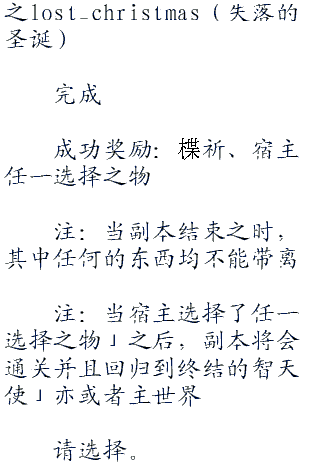 之lost_christmas（失落的
圣诞）
完成
成功奖励：楪祈、宿主
任一选择之物
注：当副本结束之时，
其中任何的东西均不能带离
注：当宿主选择了任一
选择之物」之后，副本将会
通关并且回归到终结的智天
使」亦或者主世界
请选择。